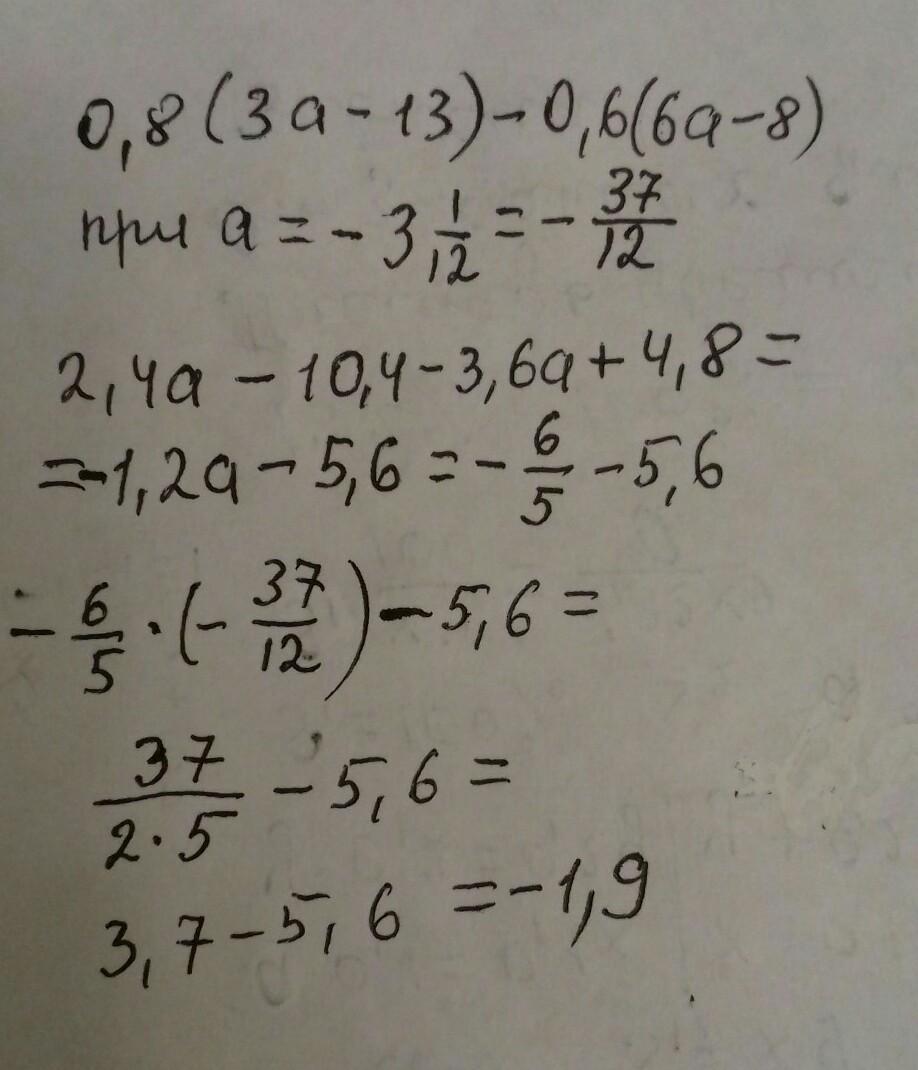 0,8(3a-13)-0,6(6a-8)
при a = -3 1/12 = - 37/12
2,4a - 10,4 - 3,6a + 4,8 =
= -1,2a - 5,6 = - 6/5 - 5,6
- 6/5 · (- 37/12) - 5,6 =
37/(2·5) - 5,6 =
3,7 - 5,6 = -1,9